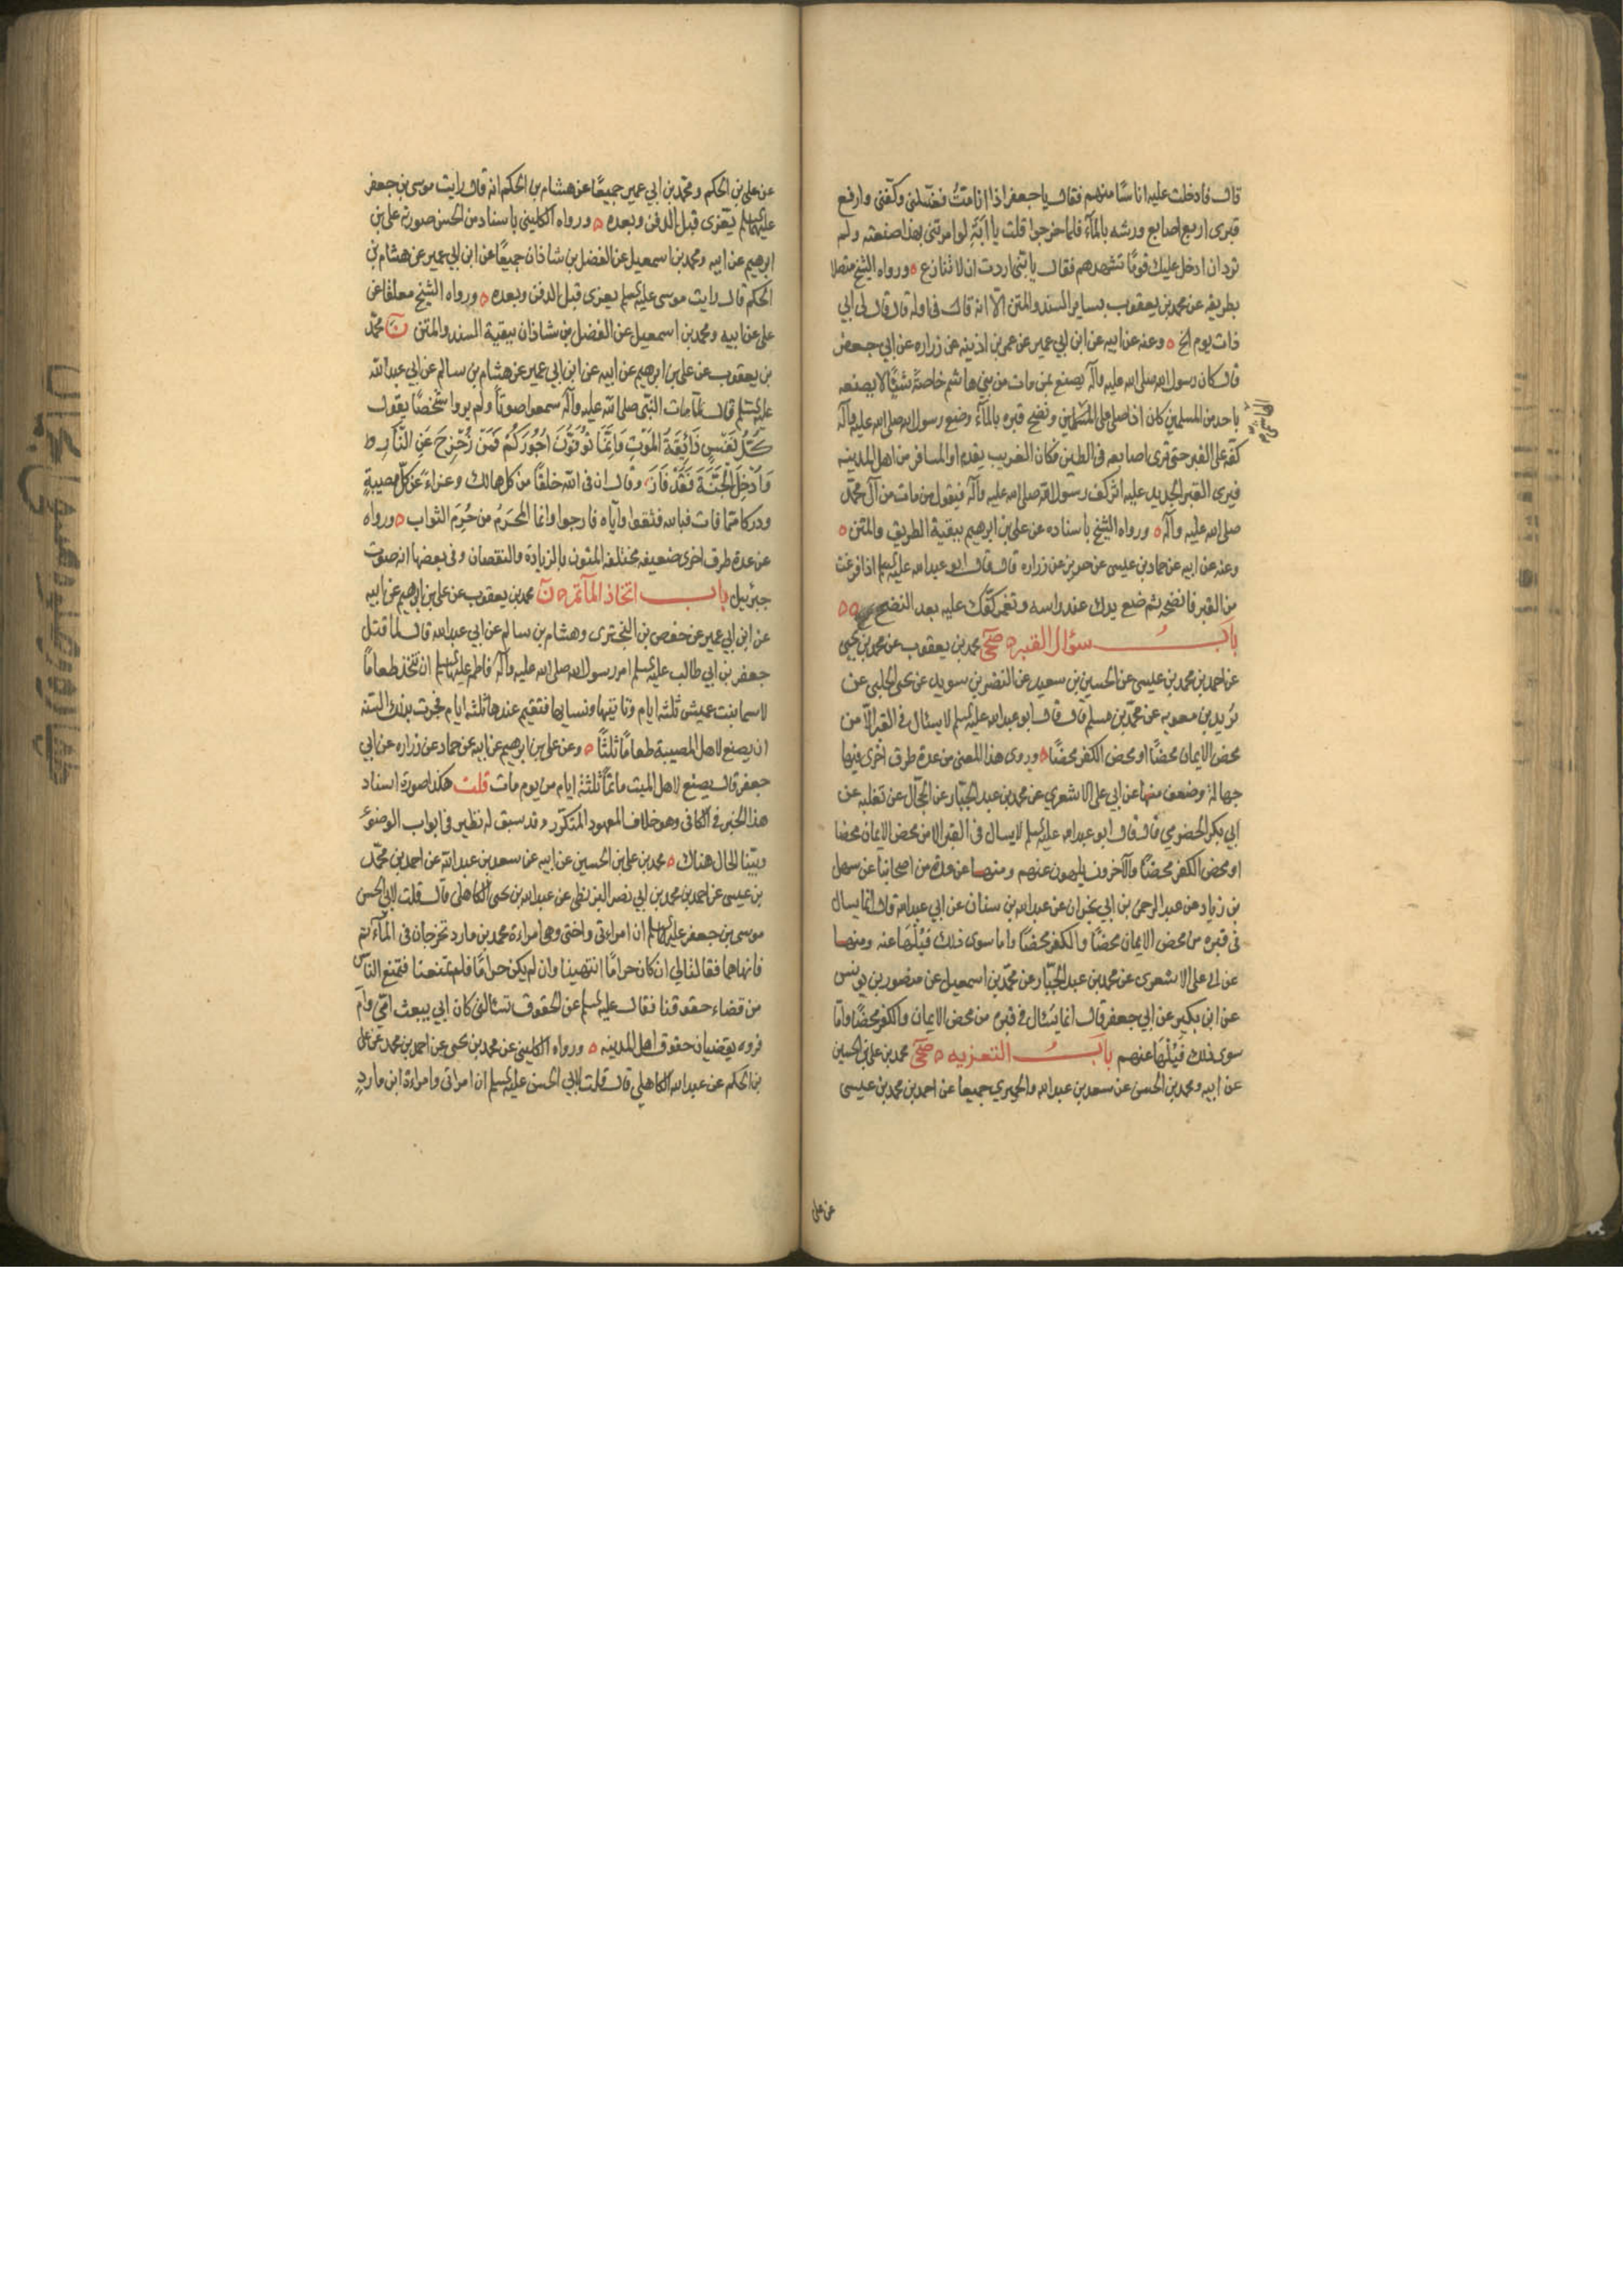 قال فادخلت عليه اناسًا منهم فقال يا جعفر اذا انا متُّ فغسّلنى وكفّنى وارفع
قبرى اربع اصابع ورشه بالمآء فلما خرجوا قلت يا ابَةِ لو امرتنى بهذا صنعته ولم
ترد ان ادخل عليك قومًا تشهدهم فقال يا بنى اردت ان لا تنازع ه ورواه الشيخ متصلا
بطريقه عن محمد بن يعقوب بساير السند والمتن الّا انه قال فى اوله قال قال لى ابى
ذات يوم الخ ه وعنه عن ابيه عن ابن ابي عمير عن عمر بن اذينه عن زراره عن ابي جعفر
قال كان رسول الله صلى الله عليه وآله يصنع بمن مات من بني هاشم خاصةً شيئًا لا يصنعه
باحد من المسلمين كان اذا صلى على الهاشمى ونضح قبره بالمآء وضع رسول الله صلى الله عليه وآله
كفّه على القبر حتى ترى اصابعه فى الطين فكان الغريب يقدم او المسافر من اهل المدينه
فيرى القبر الجديد عليه اثر كف رسول الله صلى الله عليه وآله فيقول من مات من آل محمّد
صلى الله عليه وآله ه ورواه الشيخ باسناده عن على بن ابرهيم ببقية الطريق والمتن ه
وعنه عن ابيه عن حماد بن عيسى عن حريز عن زراره قال قال ابو عبد الله عليه السلم اذا فرغت
من القبر فانضحه ثم ضع يدك عند راسه وتغمز كفّك عليه بعد النضح ه ه
بابُ سؤال القبر ه صحى محمد بن يعقوب عن محمد بن يحيى
عن احمد بن محمد بن عيسى عن الحسين بن سعيد عن النضر بن سويد عن يحيى الحلبى عن
بُريد بن معويه عن محمّد بن مسلم قال قال ابو عبد الله عليه السلم لا يسئال فى القبر الّا من
محض الايمان محضًا او محض الكفر محضًا ه وروى هذا المعنى من عدة طرق اخرى فيها
جهالة وضعف منها عن ابي على الاشعري عن محمد بن عبد الجبّار عن الحجّال عن ثعلبه عن
ابي بكر الحضرمي قال قال ابو عبد الله عليه السلم لا يسال فى القبر الا من محض الايمان محضا
او محض الكفر محضًا والآخرون يلهون عنهم ومنها عن عدة من اصحابنا عن سهل
بن زياد عن عبد الرحمن بن ابي نجران عن عبد الله بن سنان عن ابي عبد الله قال انما يسال
فى قبره من محض الايمان محضًا والكفر محضًا واما ما سوى ذلك فَيُلْهَا عنه ومنها
عن ابى على الاشعرى عن محمد بن عبد الجبّار عن محمّد بن اسمعيل عن منصور بن يونس
عن ابن بكير عن ابي جعفر قال انما يُسْئال فى قبره من محض الايمان والكفر محضًا واما
سوى ذلك فَيُلْهَا عنهم بابُ التعزيه ه صحى محمد بن على بن الحسين
عن ابيه ومحمد بن الحسن عن سعد بن عبد الله والحميري جميعا عن احمد بن محمد بن عيسى
عن على
عن على بن الحكم ومحمّد بن ابي عمير جميعًا عن هشام بن الحكم انه قال رايت موسى بن جعفر
عليهما السلم يُعَزى قبل الدفن وبعده ه ورواه الكلينى باسناد من الحسن صورته على بن
ابرهيم عن ابيه ومحمد بن اسمعيل عن الفضل بن شاذان جميعًا عن ابن ابي عمير عن هشام بن
الحكم قال رايت موسى عليه السلم يعزى قبل الدفن وبعده ه ورواه الشيخ معلقا عن
على عن ابيه ومحمد بن اسمعيل عن الفضل بن شاذان ببقية السند والمتن ن محمّد
بن يعقوب عن على بن ابرهيم عن ابيه عن ابن ابى عمير عن هشام بن سالم عن ابي عبد الله
عليه السلم قال لما مات النبّى صلى الله عليه وآله سمعوا صوتًا ولم يروا شخصًا يقول
كُلُّ نَفْسٍ ذَائِقَةُ المَوْتِ وَاِنَّمَا تُوَفَّوْنَ اُجُورَكُمْ فَمَنْ زُحْزِحَ عَنِ النَّارِ
وَاُدْخِلَ الْجَنَّةَ فَقَدْ فَازَ وقال ان فى الله خلفًا من كل هالك وعزاءً عن كلّ مصيبةٍ
ودركا ممّا فات فبالله فثقوا وايّاه فارجوا وانما المحرَومُ من حُرِمَ الثواب ه ورواه
عن عدة طرق اخرى ضعيفه مختلفة المتون بالزيادة والنقصان وفى بعضها انه صوت
جبرئيل باب اتخاذ المآتم ه ن محمد بن يعقوب عن على بن ابرهيم عن ابيه
عن ابن ابي عمير عن حفص بن البخترى وهشام بن سالم عن ابي عبد الله قال لما قتل
جعفر بن ابي طالب عليه السلم امر رسول الله صلى الله عليه وآله فاطمه عليها السلم ان تتخذ طعامًا
لاسما بنت عميس ثلثة ايام وتاتيها ونسايها فتقيم عندها ثلثة ايام فجرت بذلك السنة
ان يصنع لاهل المصيبة طعامًا ثلثًا ه وعن على بن ابرهيم عن ابيه عن حماد عن زراره عن ابي
جعفر قال يصنع لاهل الميت ماتمًا ثلثة ايام من يوم مات قلت هكذا صورة اسناد
هذا الخبر فى الكافى وهو خلاف المعهود المتكرّر وقد سبق له نظير فى ابواب الوضوء
وبيّنا الحال هناك ه محمد بن على بن الحسين عن ابيه عن سعد بن عبد الله عن احمد بن محمّد
بن عيسى عن احمد بن محمد بن ابي نصر البزنطى عن عبد الله بن يحيى الكاهلى قال قلت لابي الحسن
موسى بن جعفر عليهما السلم ان امراءتى واختى وهى امراءة محمد بن مارد تخرجان فى المآتم
فانهاهما فقالتا لي ان كان حرامًا انتهينا وان لم يكن حرامًا فلم تمنعنا فيمتنع الناس
من قضاء حقوقنا فقال عليه السلم عن الحقوق تسئالنى كان ابي يبعث امّى وامّ
فروه تقضيان حقوق اهل المدينه ه ورواه الكلينى عن محمد بن يحيى عن احمد بن محمد عن على
بن الحكم عن عبد الله الكاهلي قال قلت لابي الحسن عليه السلم ان امراتى وامراءة ابن ماردٍ